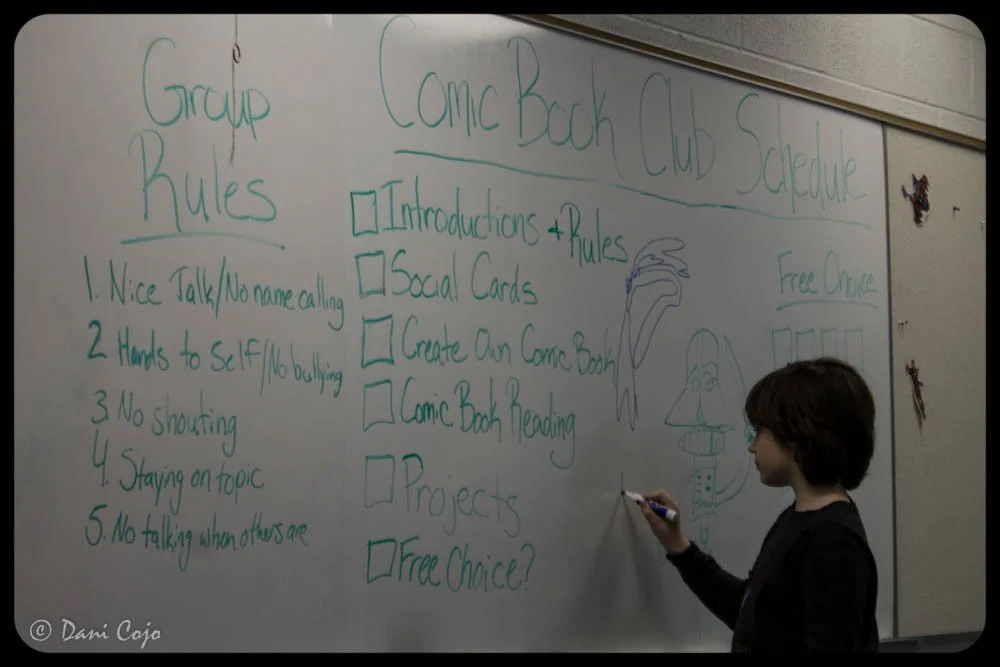 Group
Rules
1. Nice Talk/No name calling
2 Hands to Self/No bullying
3 No shouting
4. Staying on topic
5. No talking when others are
Comic Book Club Schedule
Introductions + Rules
Social Cards
Create Own Comic Book
Comic Book Reading
Projects
Free Choice?
Free Choice
© Dani Cojo